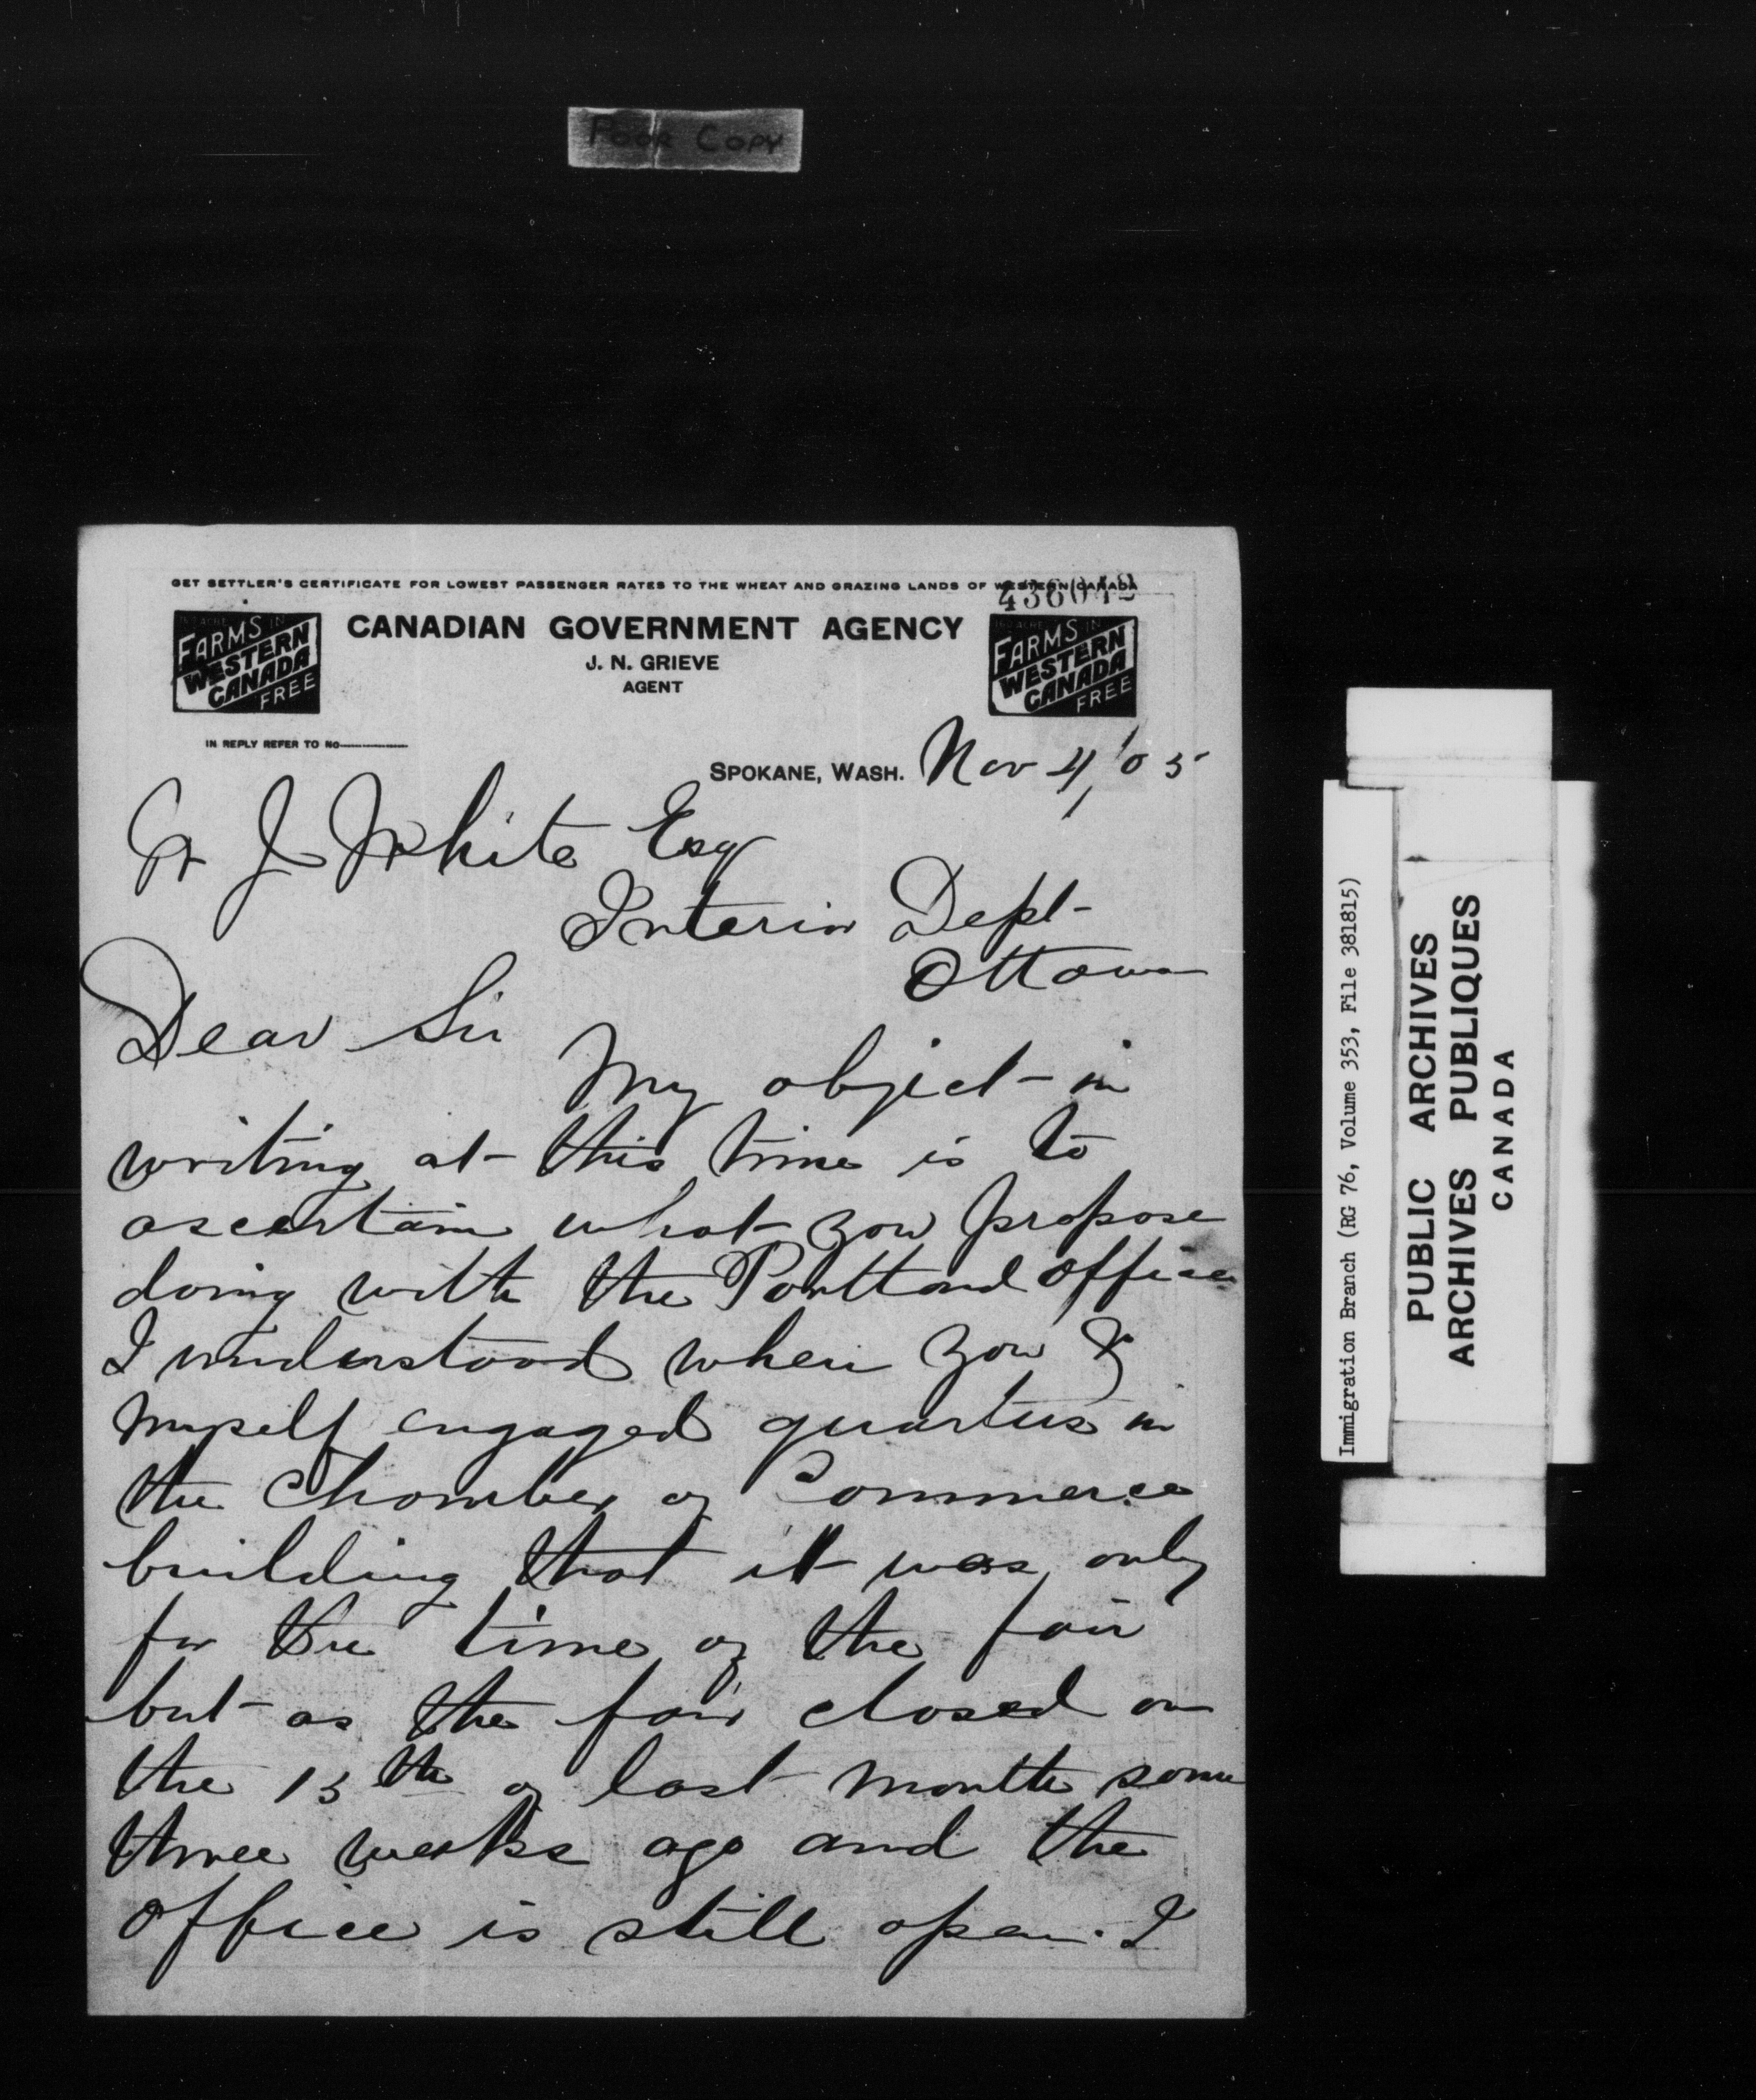 POOR COPY
GET SETTLER'S CERTIFICATE FOR LOWEST PASSENGER RATES TO THE WHEAT AND GRAZING LANDS OF WESTERN CANADA
CANADIAN GOVERNMENT AGENCY
J. N. GRIEVE
AGENT
FARMS IN
WESTERN
CANADA
FREE
FARMS IN
WESTERN
CANADA
FREE
IN REPLY REFER TO NO
SPOKANE, WASH. Nov 4, '05
W J White Esq
Interior Dept
Ottawa
Dear Sir
My object in
writing at this time is to
ascertain what you propose
doing with the Portland office
I understood when you &
myself engaged quarters in
the Chamber of Commerce
building that it was only
for the time of the fair
but as the fair closed on
the 15th of last month some
three weeks ago and the
office is still open. I
Immigration Branch (RG 76, Volume 353, File 381815)
PUBLIC ARCHIVES
ARCHIVES PUBLIQUES
CANADA